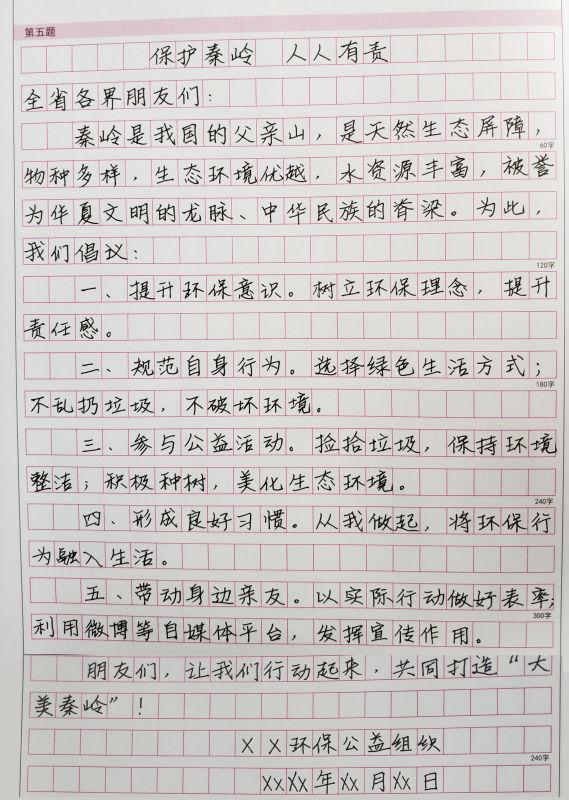 第五题
保护秦岭 人人有责
全省各界朋友们：
秦岭是我国的父亲山，是天然生态屏障，
60字
物种多样，生态环境优越，水资源丰富，被誉
为华夏文明的龙脉、中华民族的脊梁。为此，
我们倡议：
120字
一、提升环保意识。树立环保理念，提升
责任感。
二、规范自身行为。选择绿色生活方式；
180字
不乱扔垃圾，不破坏环境。
三、参与公益活动。捡拾垃圾，保持环境
整洁；积极种树，美化生态环境。
240字
四、形成良好习惯。从我做起，将环保行
为融入生活。
五、带动身边亲友。以实际行动做好表率；
300字
利用微博等自媒体平台，发挥宣传作用。
朋友们，让我们行动起来，共同打造“大
美秦岭”！
××环保公益组织
240字
××××年××月××日